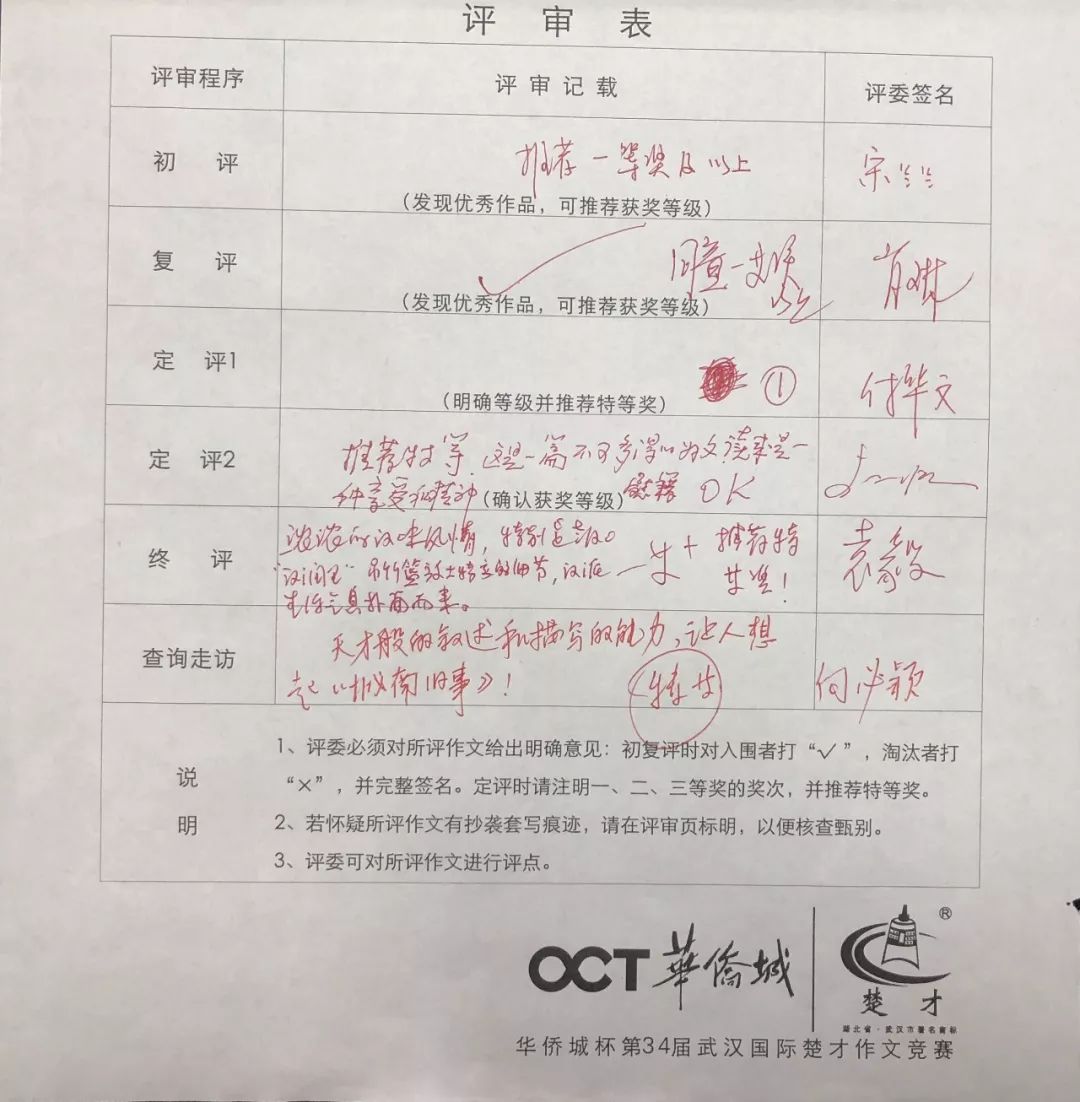 评审表
评审程序 评审记载 评委签名
初 评 推荐一等奖及以上 宗兰兰
(发现优秀作品，可推荐获奖等级)
复 评 同意一等奖 以上 肖琳
(发现优秀作品，可推荐获奖等级)
定 评1 ① 付华文
(明确等级并推荐特等奖)
定 评2 推荐特等，这是一篇不可多得的好文，读来是一
种享受和精神(确认获奖等级)慰籍 OK
终 评 浓浓的汉味风情，特别是
"汉润里" 吊竹篮 的细节，汉派 一等+ 推荐特 袁毅
生活气息扑面而来。 等奖！
查询走访 天才般的叙述和描写的能力，让人想
起《城南旧事》！ 特等 何必颖
说明
1、评委必须对所评作文给出明确意见：初复评时对入围者打“√”，淘汰者打
“×”，并完整签名。定评时请注明一、二、三等奖的奖次，并推荐特等奖。
2、若怀疑所评作文有抄袭套写痕迹，请在评审页标明，以便核查甄别。
3、评委可对所评作文进行评点。
OCT 華僑城
楚才 ®
湖北省·武汉市著名商标
华侨城杯第34届武汉国际楚才作文竞赛